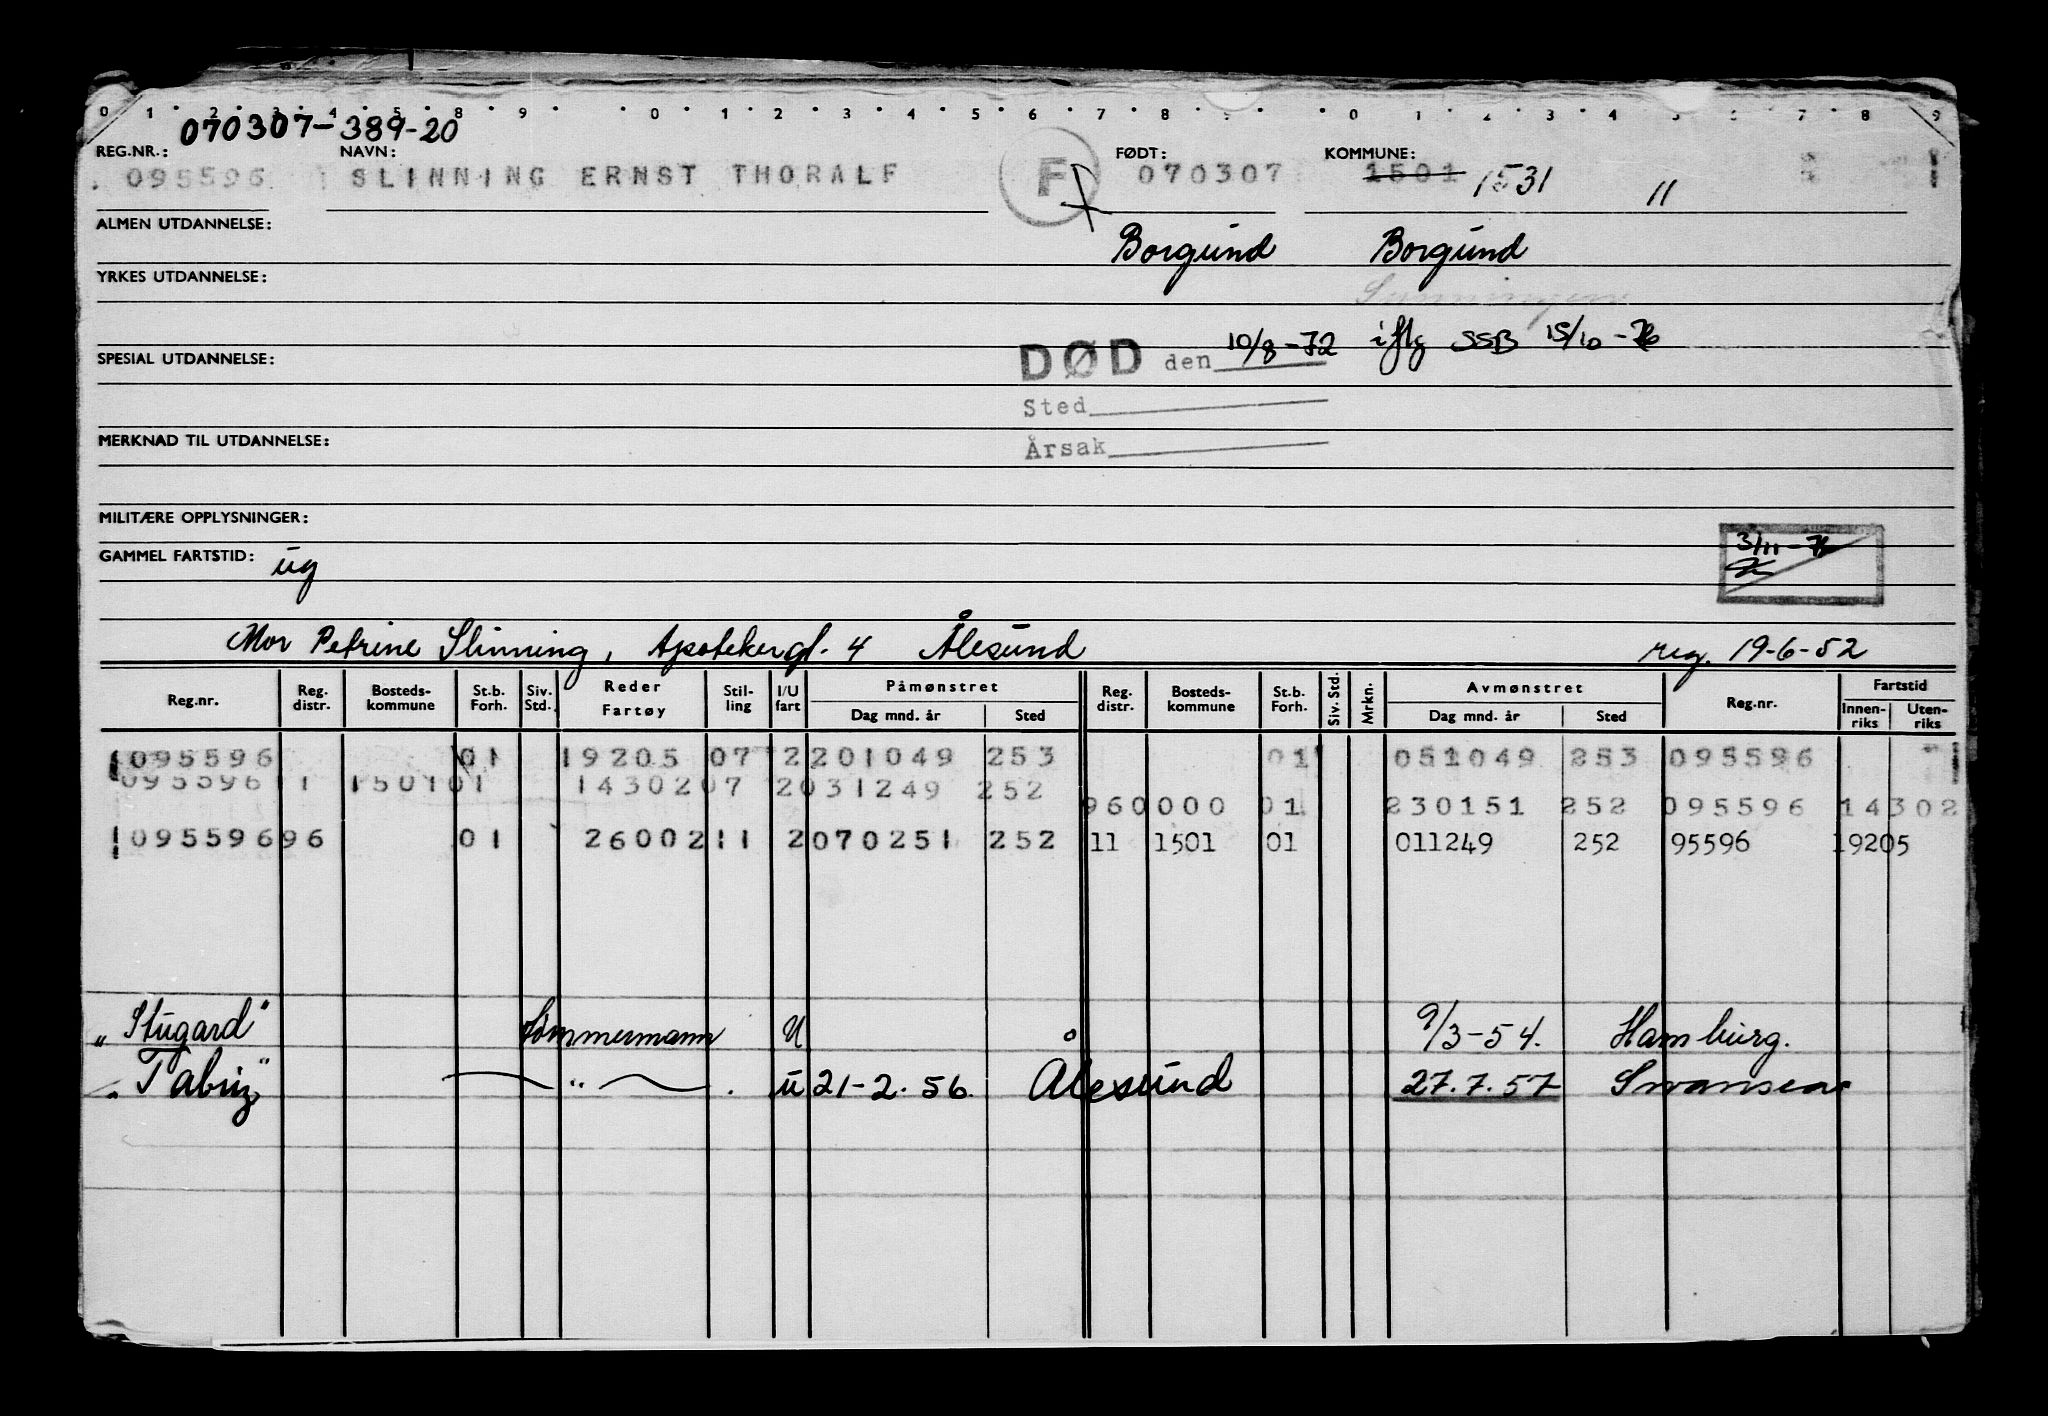 0 1 2 3 4 5 8 9 0 1 2 3 4 5 6 7 8 9 0 1 2 3 4 5 6 7 8 9
070307-389-20
REG.NR.: NAVN: FØDT: KOMMUNE:
095596 SLINNING ERNST THORALF F 070307 1501 1531 11
ALMEN UTDANNELSE: Borgund Borgund
YRKES UTDANNELSE:
DØD den 10/8-72 iflg SSB 15/10-76
SPESIAL UTDANNELSE:
Sted
MERKNAD TIL UTDANNELSE:
Årsak
MILITÆRE OPPLYSNINGER:
GAMMEL FARTSTID: ug 3/11-76
Mor Petrine Slinning, Apotekergt. 4 Ålesund reg. 19-6-52
Reg.nr. Reg. distr. Bosteds-kommune St.b. Forh. Siv. Std. Reder Fartøy Stil-ling I/U fart Påmønstret Dag mnd. år Sted Reg. distr. Bosteds-kommune St.b. Forh. Siv. Std. Mrkn. Avmønstret Dag mnd. år Sted Reg.nr. Fartstid Innen-riks Uten-riks
095596 01 19205 07 2 201049 253 01 051049 253 095596
095596 11 1501 01 14302 07 2 031249 252
960000 01 230151 252 095596 14302
095596 96 01 26002 11 2 070251 252 11 1501 01 011249 252 95596 19205
"Stugard" Tømmermann U 9/3-54. Hamburg.
"Tabriz" " u 21-2.56. Ålesund 27.7.57 Swansea